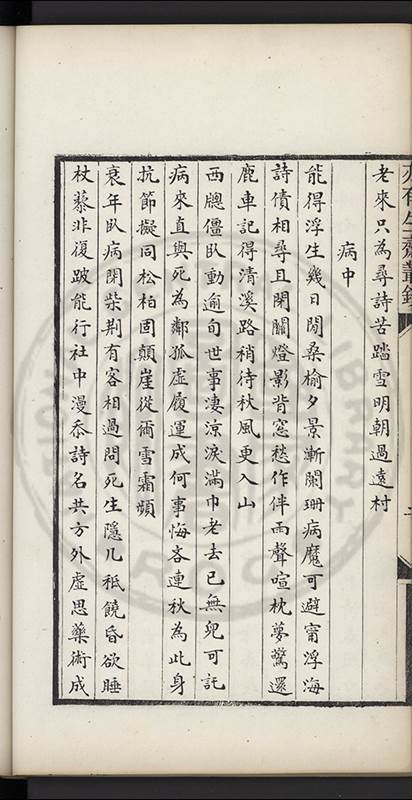 老來只為尋詩苦踏雪明朝過遠村
病中
能得浮生幾日閒桑榆夕景漸闌珊病魔可避甯浮海
詩債相尋且閉關燈影背窓愁作伴雨聲喧枕夢驚還
鹿車記得清溪路稍待秋風更入山
西牕僵臥動逾旬世事凄涼淚滿巾老去已無兒可託
病來直與死為鄰孤虛履運成何事悔吝連秋為此身
抗節擬同松柏固顛崖從爾雪霜頻
衰年臥病閉柴荆有客相過問死生隱几秖饒昏欲睡
杖藜非復跛能行社中漫忝詩名共方外虛思藥術成